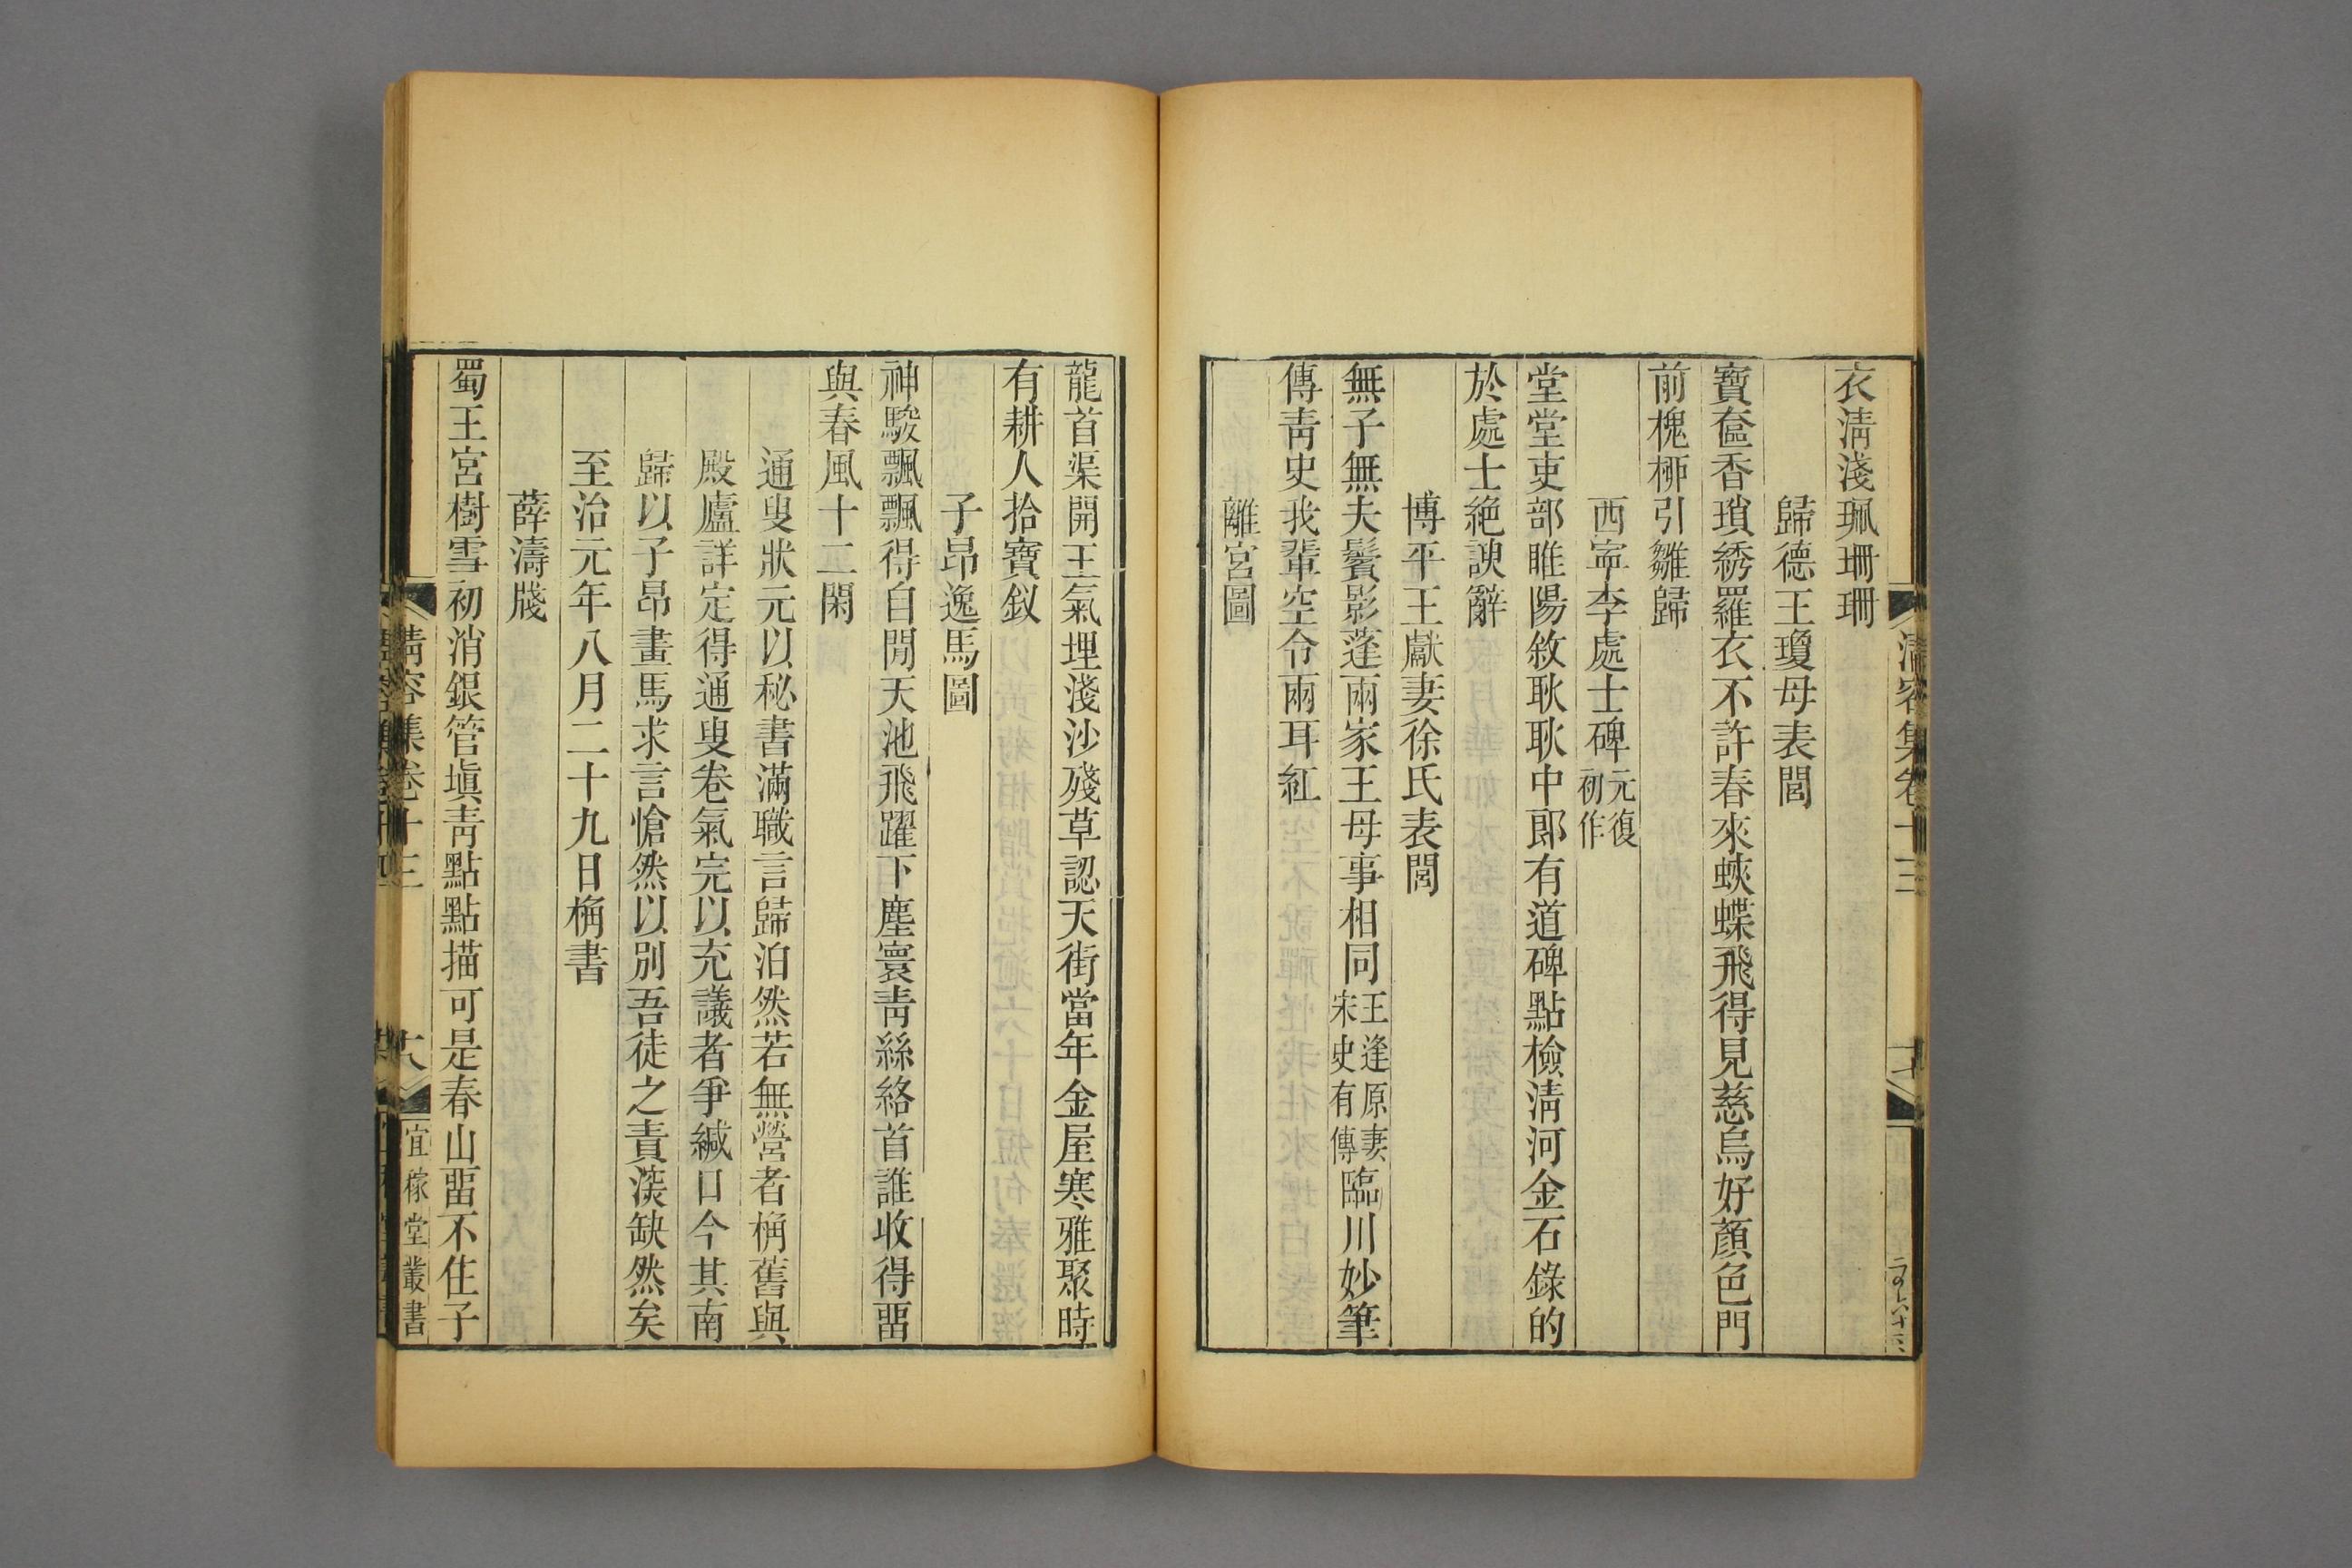 衣淸淺珮珊珊
歸德王瓊母表閭
寶奩香瑣綉羅衣不許春來蛺蝶飛得見慈烏好顏色門
前槐栁引雛歸
西寍李處士碑元復初作
堂堂吏部睢陽敘耿耿中郞有道碑點檢淸河金石錄的
於處士絶諛辭
博平王獻妻徐氏表閭
無子無夫鬢影蓬兩家王母事相同王逢原妻宋史有傳臨川妙筆
傳靑史我輩空令兩耳紅
離宮圖
龍首渠開王氣埋淺沙殘草認天街當年金屋寒雅聚時
有耕人拾寶釵
子昂逸馬圖
神駿飄飄得自閒天池飛躍下塵寰靑絲絡首誰收得畱
與春風十二閑
通叟狀元以秘書滿職言歸泊然若無營者桷舊與
殿廬詳定得通叟卷氣完以充議者爭緘口今其南
歸以子昂畫馬求言愴然以別吾徒之責深缺然矣
至治元年八月二十九日桷書
薛濤牋
蜀王宮樹雪初消銀管塡靑點點描可是春山畱不住子
淸容集卷十三
宜稼堂叢書